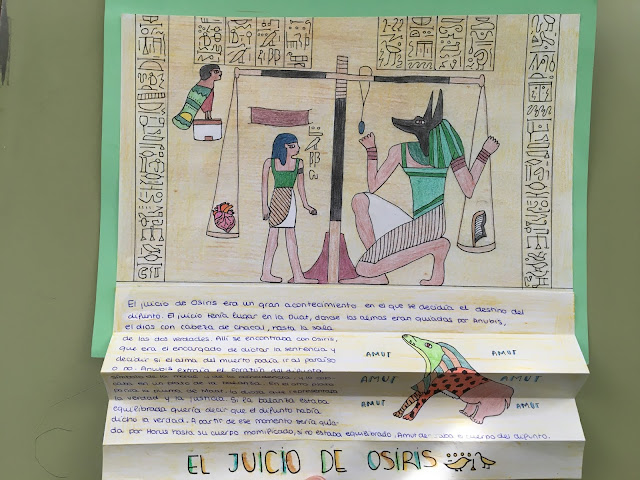 El juicio de Osiris era un gran acontecimiento en el que se decidía el destino del
difunto. El juicio tenía lugar en la Duat, donde las almas eran guiadas por Anubis,
el dios con cabeza de chacal, hasta la sala
de las dos verdades. Allí se encontraba con Osiris,
que era el encargado de dictar la sentencia y
decidir si el alma del muerto podía ir al paraíso
o no. Anubis extraía el corazón del difunto
En el otro plato
ponía la pluma de Maat, la diosa que representaba
la verdad y la justicia. Si la balanza estaba
equilibrada quería decir que el difunto había
dicho la verdad. A partir de ese momento sería guia-
do por Horus hasta su cuerpo momificado, si no estaba equilibrado, Amut el cuerpo del difunto.
AMUT AMUT
AMUT AMUT
AMUT AMUT
EL JUICIO DE OSIRIS